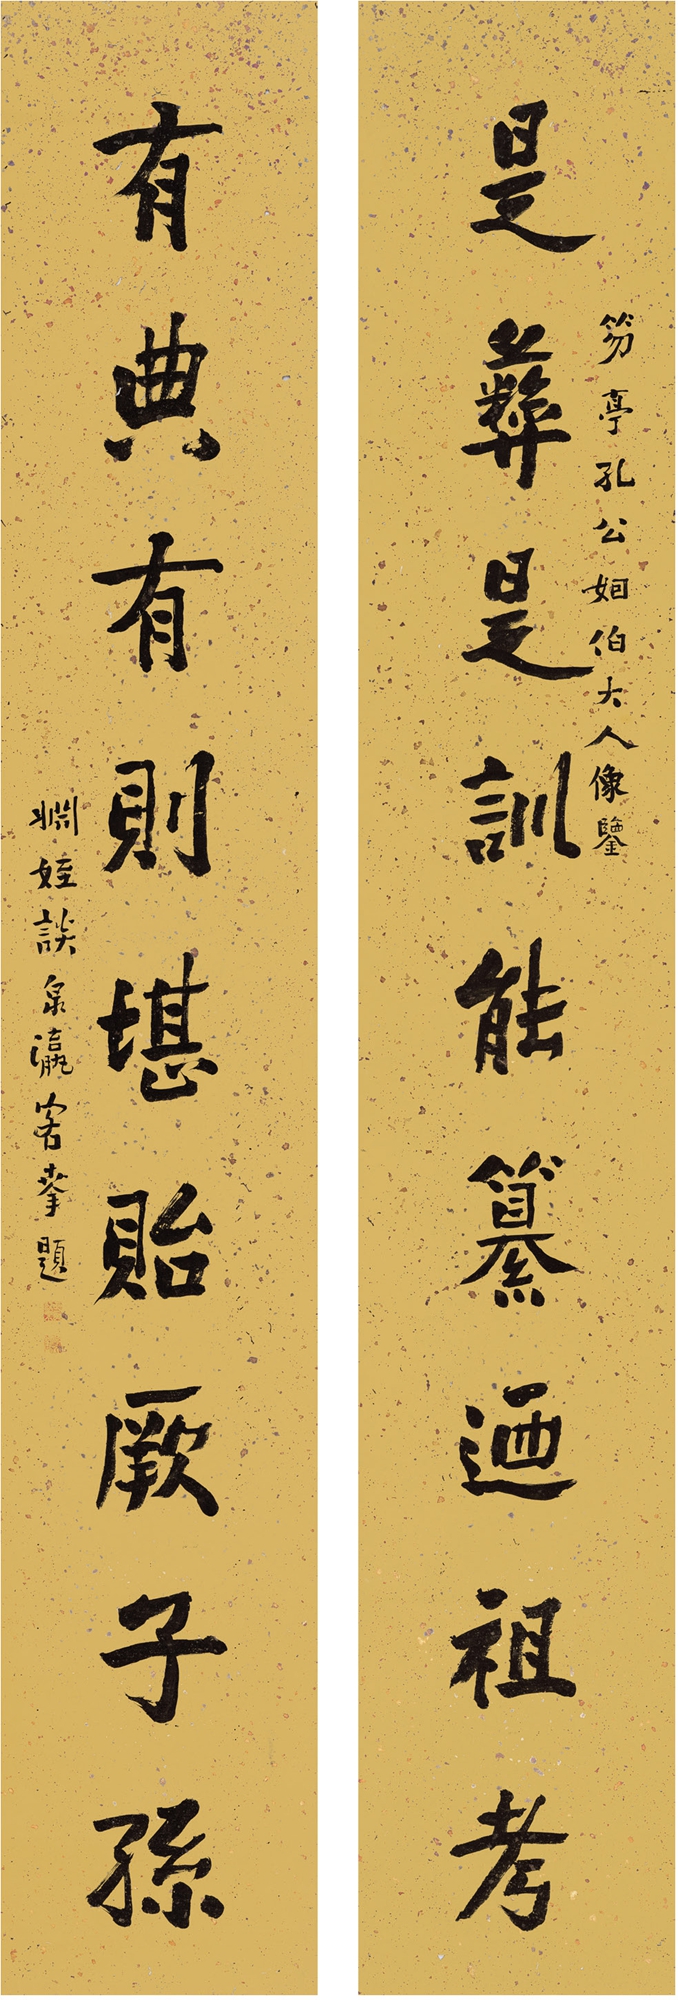 笏亭孔公姻伯大人像鑒
是彝是訓能纂迺祖考
有典有則堪貽厥子孫
婣姪談泉瀛客題